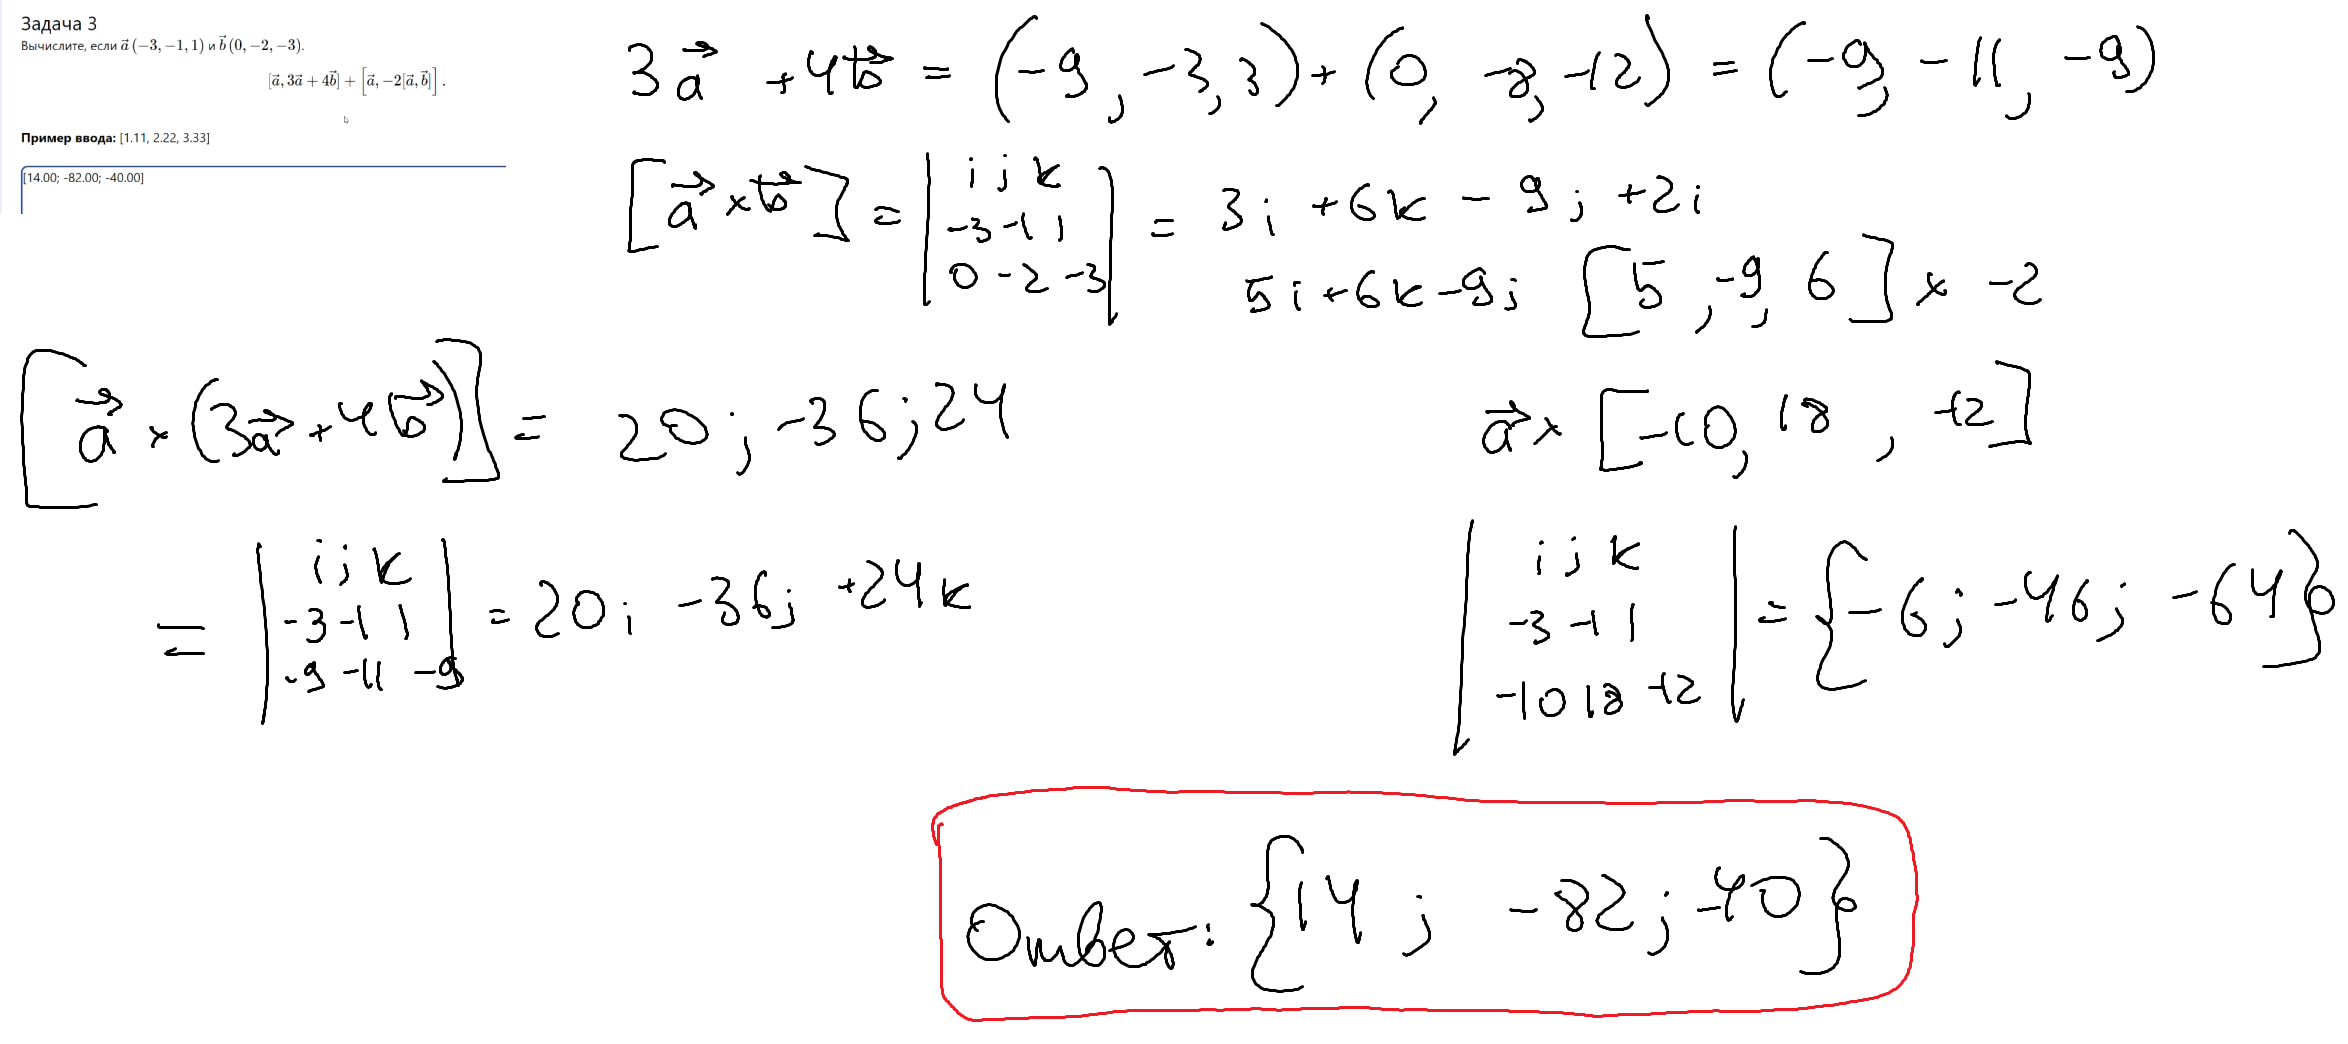 Задача 3
Вычислите, если a⃗ (−3, −1, 1) и b⃗ (0, −2, −3).
[a⃗, 3a⃗ + 4b⃗] + [a⃗, −2[a⃗, b⃗]] .
Пример ввода: [1.11, 2.22, 3.33]
[14.00; -82.00; -40.00]
3a⃗ + 4b⃗ = (-9, -3, 3) + (0, -8, -12) = (-9, -11, -9)
[a⃗ × b⃗] = | i j k
-3 -1 1
0 -2 -3 | = 3i + 6k - 9j + 2i
5i + 6k - 9j [5, -9, 6] × -2
[a⃗ × (3a⃗ + 4b⃗)] = 20; -36; 24
a⃗ × [-10, 18, -12]
= | i j k
-3 -1 1
-9 -11 -9 | = 20i - 36j + 24k
| i j k
-3 -1 1
-10 18 -12 | = {-6; -46; -64}
Ответ: {14; -82; -40}